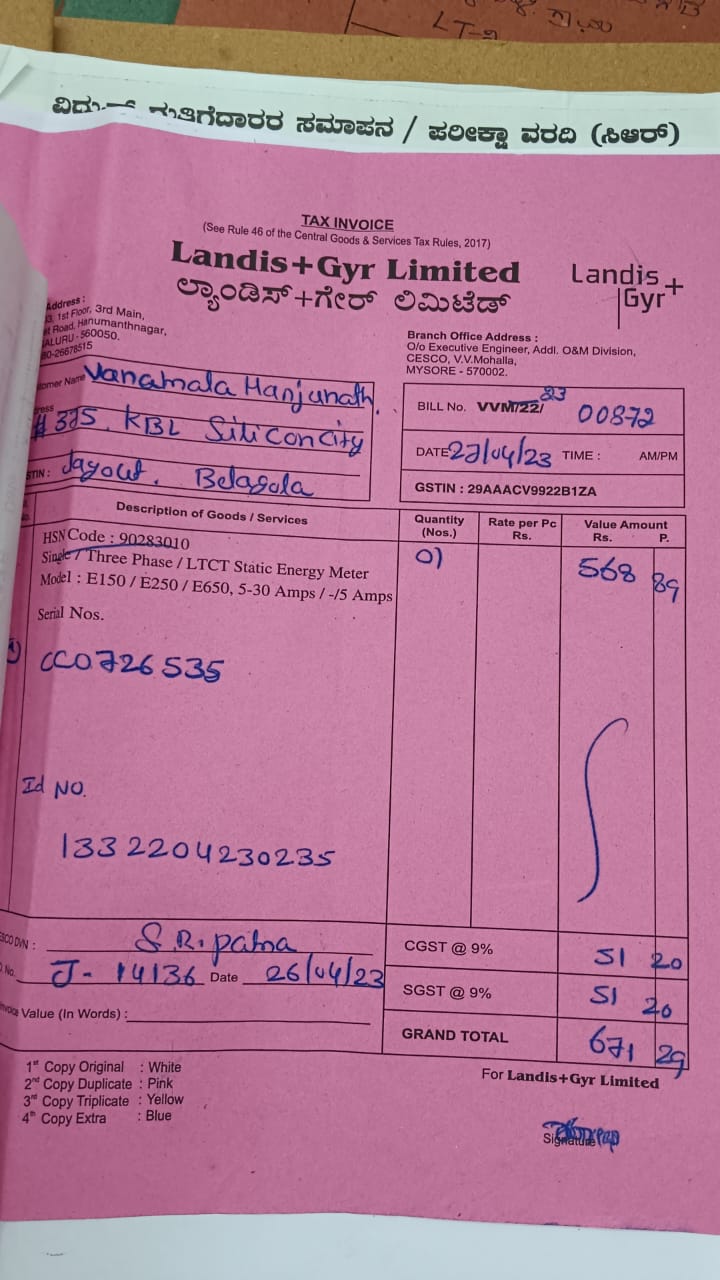 LT-2
ವಿದ್ಯುತ್ ಗುತ್ತಿಗೆದಾರರ ಸಮಾಪನ / ಪರೀಕ್ಷಾ ವರದಿ (ಸಿಆರ್)
TAX INVOICE
(See Rule 46 of the Central Goods & Services Tax Rules, 2017)
Landis+Gyr Limited
ಲ್ಯಾಂಡಿಸ್+ಗೇರ್ ಲಿಮಿಟೆಡ್
Landis+
Gyr
Address :
1st Floor, 3rd Main,
Road, Hanumanthnagar,
ALURU - 560050.
80-26678515
Branch Office Address :
O/o Executive Engineer, Addl. O&M Division,
CESCO, V.V.Mohalla,
MYSORE - 570002.
tomer Name Vanamala Manjunath.
ress # 375, KBL Silicon City
STIN : Layout. Belagola
BILL No. VVM/22/ 23 00872
DATE 27/04/23 TIME : AM/PM
GSTIN : 29AAACV9922B1ZA
Description of Goods / Services Quantity (Nos.) Rate per Pc Rs. Value Amount Rs. P.
HSN Code : 90283010 01 568 89
Single / Three Phase / LTCT Static Energy Meter
Model : E150 / E250 / E650, 5-30 Amps / -/5 Amps
Serial Nos.
1) CC0726535
Id NO.
1332204230235
ESCO DVN : S.R. patna
No. J- 14136 Date 26/04/23
Invoice Value (In Words) :
CGST @ 9% 51 20
SGST @ 9% 51 20
GRAND TOTAL 671 29
1st Copy Original : White
2nd Copy Duplicate : Pink
3rd Copy Triplicate : Yellow
4th Copy Extra : Blue
For Landis+Gyr Limited
Signature